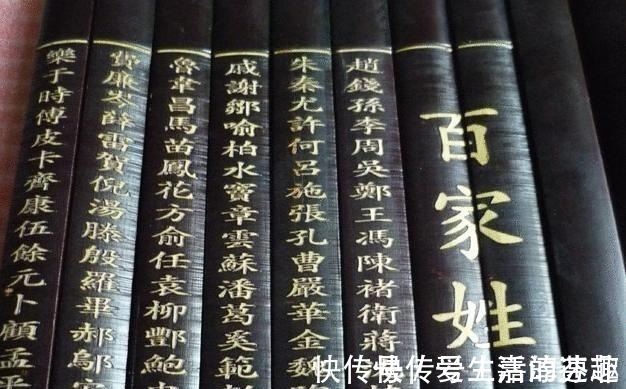 百家姓
趙錢孫李周吳鄭王馮陳褚衛蔣
朱秦尤許何呂施張孔曹嚴華金魏
戚謝鄒喻柏水竇章雲蘇潘葛奚範
魯韋昌馬苗鳳花方俞任袁柳酆鮑史
費廉岑薛雷賀倪湯滕殷羅畢郝鄔安
樂于時傅皮卡齊康伍餘元卜顧孟平